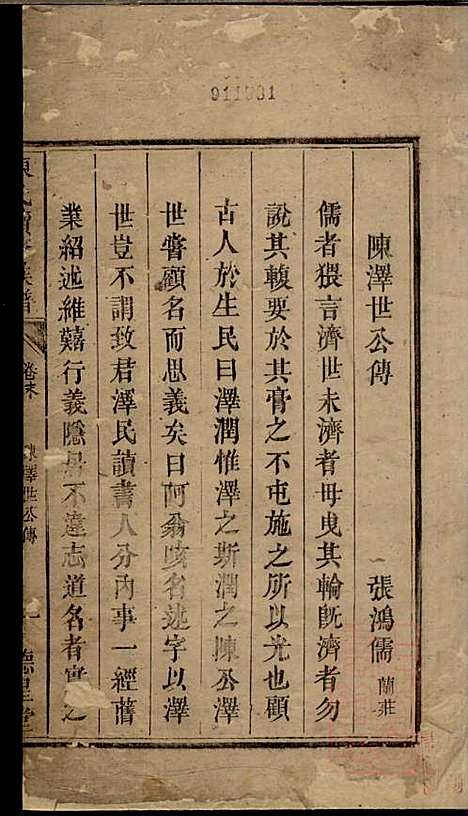 911031
陳澤世公傳
張鴻儒 蘭庄
儒者猥言濟世未濟者毋曳其輪旣濟者勿
說其輹要於其膏之不屯施之所以光也顧
古人於生民曰澤潤惟澤之斯潤之陳公澤
世嘗顧名而思義矣曰阿翁 名述字以澤
世豈不謂致君澤民讀書人分內事一經舊
業紹述維囏行義隱居不違志道名者實之
卷末
陳澤世公傳
一
德星堂